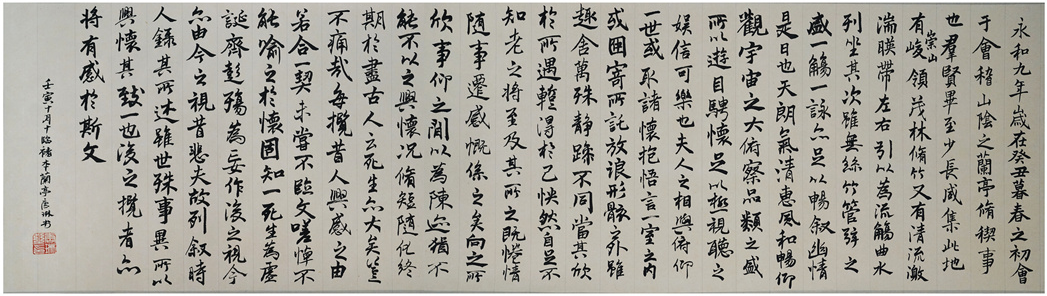 永和九年歲在癸丑暮春之初會
于會稽山陰之蘭亭脩稧事
也羣賢畢至少長咸集此地
有崇山峻領茂林脩竹又有清流激
湍暎帶左右引以為流觴曲水
列坐其次雖無絲竹管弦之
盛一觴一詠亦足以暢敘幽情
是日也天朗氣清惠風和暢仰
觀宇宙之大俯察品類之盛
所以遊目騁懷足以極視聽之
娛信可樂也夫人之相與俯仰
一世或取諸懷抱悟言一室之內
或因寄所託放浪形骸外雖
趣舍萬殊靜躁不同當其欣
於所遇蹔得於己怏然自足不
知老之將至及其所之既惓情
隨事遷感慨係之矣向之所
欣仰之閒以為陳迹猶不
能不以之興懷況脩短隨化終
期於盡古人云死生亦大矣豈
不痛哉每攬昔人興感之由
若合一契未嘗不臨文嗟悼不
能喻之於懷固知一死生為虛
誕齊彭殤為妄作後之視今
亦由今之視昔悲夫故列敘時
人錄其所述雖世殊事異所以
興懷其致一也後之攬者亦
將有感於斯文
壬寅十月十臨褚本蘭亭